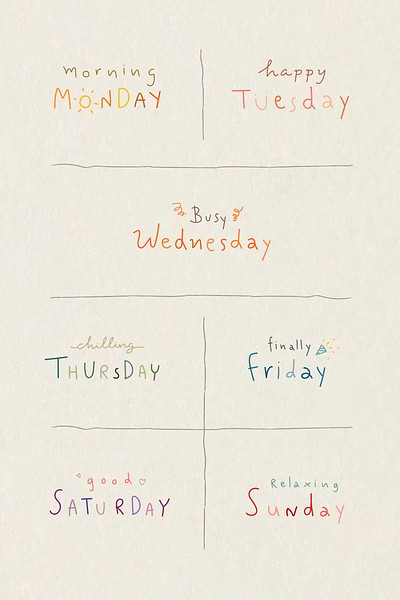 morning
MONDAY
happy
Tuesday
Busy
Wednesday
chilling
THURSDAY
finally
Friday
good
SATURDAY
Relaxing
Sunday